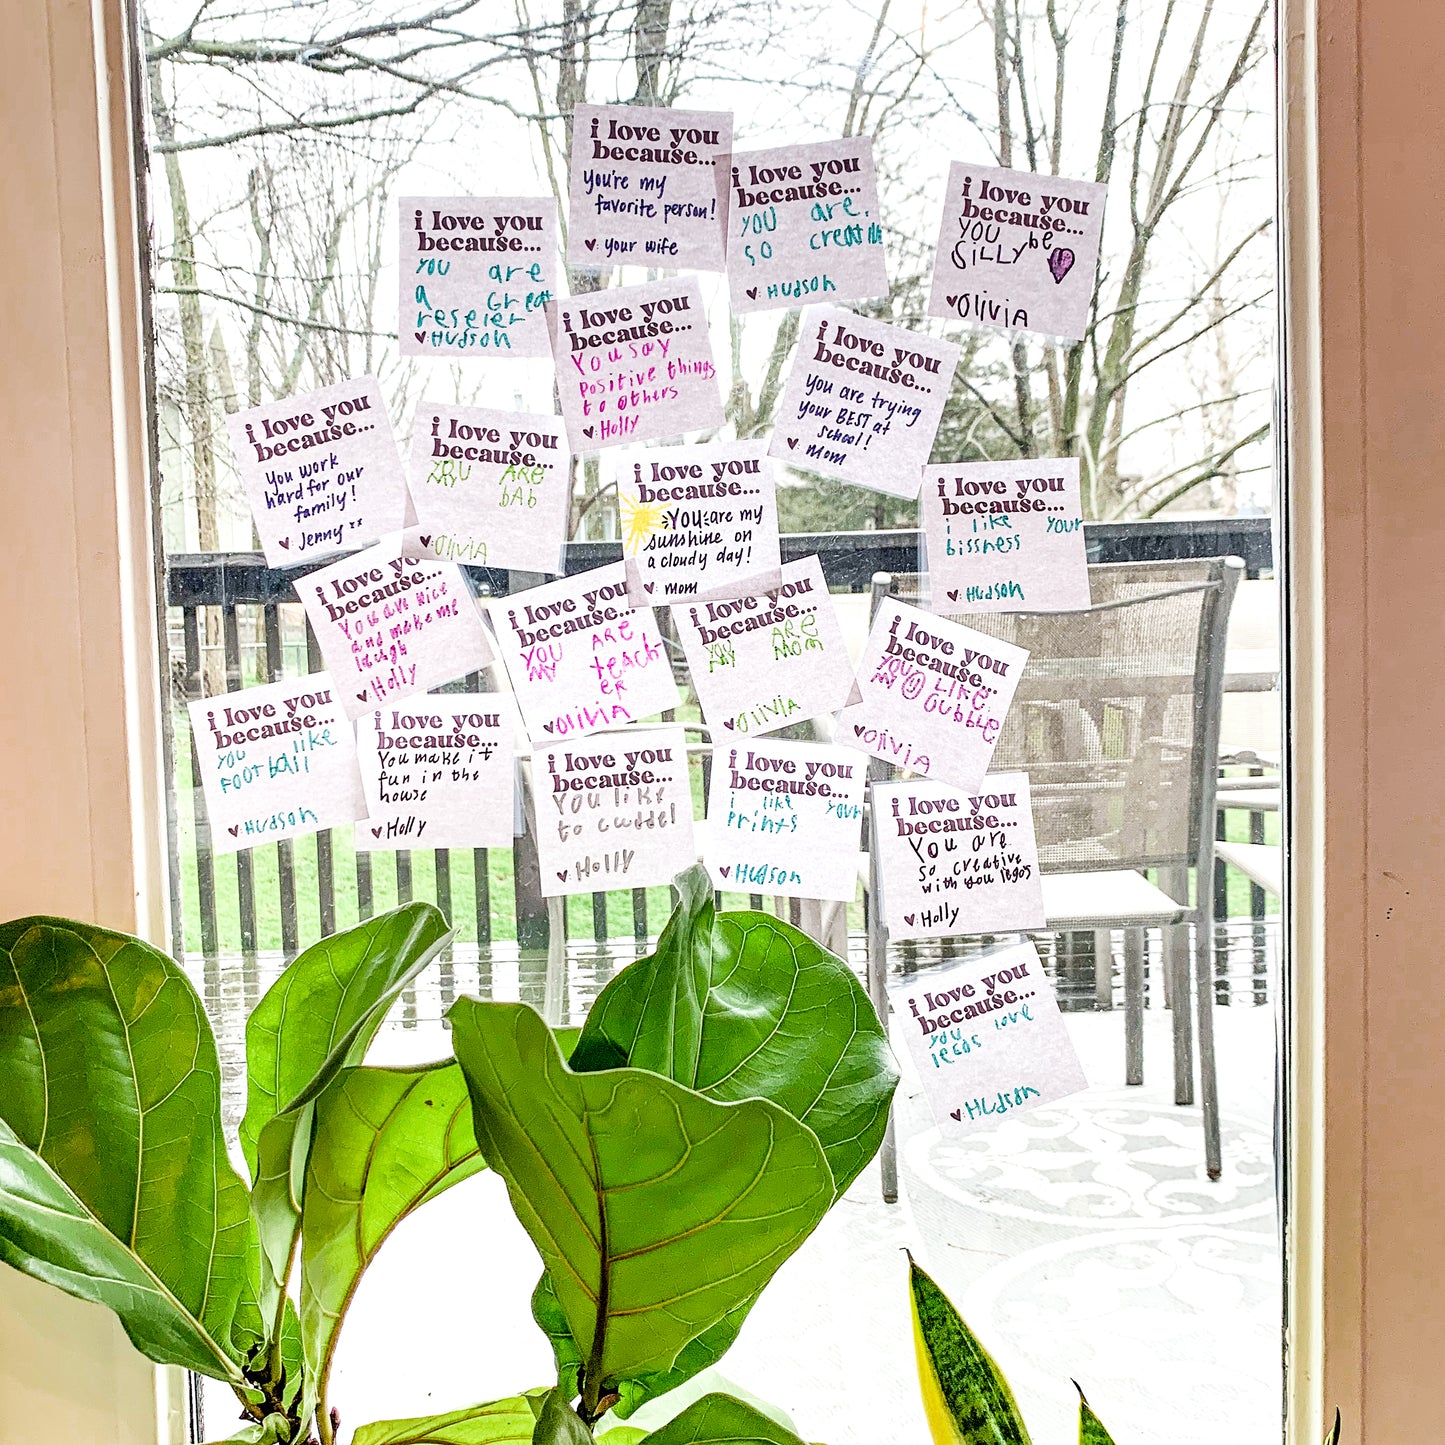 i love you
because...
you're my
favorite person!
♥: your wife
i love you
because...
you are
so creative
♥: Hudson
i love you
because...
YOU be
SiLLY
♥Olivia
i love you
because...
you are
a Great
reseier
♥: Hudson
i love you
because...
You say
positive things
to others
♥: Holly
i love you
because...
you are trying
your BEST at
school!
♥: mom
i love you
because...
You work
hard for our
family!
♥ Jenny xx
i love you
because...
YOU ARE
MY bAb
♥: OliviA
i love you
because...
YOU are my
sunshine on
a cloudy day!
♥: mom
i love you
because...
i like your
bissness
♥: Hudson
i love you
because...
You are nice
and make me
laugh
♥: Holly
i love you
because...
YOU ARE
MY teach
eR
♥: OliviA
i love you
because...
YOU ARE
MY MOM
♥: OliviA
i love you
because...
YOU LIKE
MY GUbbLe
♥: OliviA
i love you
because...
you like
FOOtball
♥: Hudson
i love you
because...
You make it
fun in the
house
♥: Holly
i love you
because...
You like
to cwddel
♥: Holly
i love you
because...
i like your
prints
♥: Hudson
i love you
because...
You are
so creative
with you legos
♥: Holly
i love you
because...
you love
legos
♥: Hudson